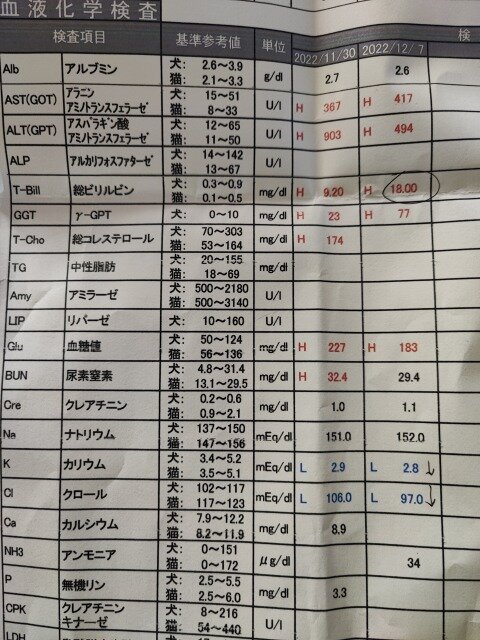 血液化学検査
検査項目 基準参考値 単位 2022/11/30 2022/12/ 7 検
Alb アルブミン 犬: 2.6~3.9 猫: 2.1~3.3 g/dl 2.7 2.6
AST(GOT) アラニンアミノトランスフェラーゼ 犬: 15~51 猫: 8~33 U/l H 367 H 417
ALT(GPT) アスパラギン酸アミノトランスフェラーゼ 犬: 12~65 猫: 11~50 U/l H 903 H 494
ALP アルカリフォスファターゼ 犬: 14~142 猫: 13~67 U/l
T-Bill 総ビリルビン 犬: 0.3~0.9 猫: 0.1~0.5 mg/dl H 9.20 H 18.00
GGT γ-GPT 犬: 0~10 mg/dl H 23 H 77
T-Cho 総コレステロール 犬: 70~303 猫: 53~164 mg/dl H 174
TG 中性脂肪 犬: 20~155 猫: 18~69 mg/dl
Amy アミラーゼ 犬: 500~2180 猫: 500~3140 U/l
LIP リパーゼ 犬: 10~160 U/l
Glu 血糖値 犬: 50~124 猫: 56~136 mg/dl H 227 H 183
BUN 尿素窒素 犬: 4.8~31.4 猫: 13.1~29.5 mg/dl H 32.4 29.4
Cre クレアチニン 犬: 0.2~0.6 猫: 0.9~2.1 mg/dl 1.0 1.1
Na ナトリウム 犬: 137~150 猫: 147~156 mEq/dl 151.0 152.0
K カリウム 犬: 3.4~5.2 猫: 3.5~5.1 mEq/dl L 2.9 L 2.8 ↓
Cl クロール 犬: 102~117 猫: 117~123 mEq/dl L 106.0 L 97.0 ↓
Ca カルシウム 犬: 7.9~12.2 猫: 8.2~11.9 mg/dl 8.9
NH3 アンモニア 犬: 0~151 猫: 0~172 μg/dl 34
P 無機リン 犬: 2.5~5.5 猫: 2.5~6.0 mg/dl 3.3
CPK クレアチニンキナーゼ 犬: 8~216 猫: 54~440 U/l
LDH